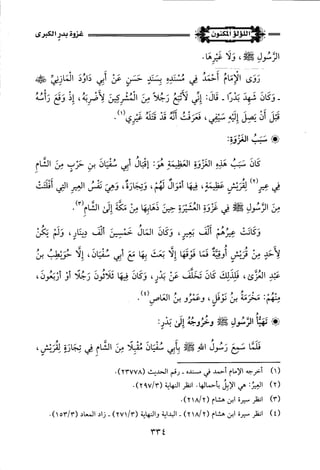 اللؤلؤ المكنون
غزوة بدر الكبرى
الرَّسُولِ ﷺ، وَلَا غَيْرِهَا.
رَوَى الإِمَامُ أَحْمَدُ فِي مُسْنَدِهِ بِسَنَدٍ حَسَنٍ عَنْ أَبِي دَاوُدَ المَازِنِيِّ ﷺ
- وَكَانَ شَهِدَ بَدْرًا - قَالَ: إِنِّي لَأَتْبَعُ رَجُلًا مِنَ المُشْرِكِينَ لِأَضْرِبَهُ، إِذْ وَقَعَ رَأْسُهُ
قَبْلَ أَنْ يَصِلَ إِلَيْهِ سَيْفِي، فَعَرَفْتُ أَنَّهُ قَدْ قَتَلَهُ غَيْرِي(١).
◉ سَبَبُ الغَزْوَةِ:
كَانَ سَبَبُ هَذِهِ الغَزْوَةِ العَظِيمَةِ هُوَ: إِقْبَالُ أَبِي سُفْيَانَ بنِ حَرْبٍ مِنَ الشَّامِ
فِي عِيرٍ(٢) لِقُرَيْشٍ عَظِيمَةٍ، فِيهَا أَمْوَالٌ لَهُمْ، وَتِجَارَةٌ، وَهِيَ نَفْسُ العِيرِ التِي أَفْلَتَتْ
مِنَ الرَّسُولِ ﷺ فِي غَزْوَةِ العُشَيْرَةِ حِينَ ذَهَابِهَا مِنْ مَكَّةَ إِلَى الشَّامِ(٣).
وَكَانَتْ عِيرُهُمْ أَلْفَ بَعِيرٍ، وَكَانَ المَالُ خَمْسِينَ أَلْفَ دِينَارٍ، وَلَمْ يَكُنْ
لِأَحَدٍ مِنْ قُرَيْشٍ أُوقِيَّةٌ فَمَا فَوْقَهَا إِلَّا بَعَثَ بِهَا مَعَ أَبِي سُفْيَانَ، إِلَّا حُوَيْطِبَ بنَ
عَبْدِ العُزَّى، فَلِذَلِكَ كَانَ تَخَلَّفَ عَنْ بَدْرٍ، وَكَانَ فِيهَا ثَلَاثُونَ رَجُلًا أَوْ أَرْبَعُونَ،
مِنْهُمْ: مَخْرَمَةُ بنُ نَوْفَلٍ، وَعَمْرُو بنُ العَاصِ(٤).
◉ تَهَيُّأُ الرَّسُولِ ﷺ وَخُرُوجُهُ إِلَى بَدْرٍ:
فَلَمَّا سَمِعَ رَسُولُ اللهِ ﷺ بِأَبِي سُفْيَانَ مُقْبِلًا مِنَ الشَّامِ فِي تِجَارَةٍ لِقُرَيْشٍ،
(١) أخرجه الإمام أحمد في مسنده - رقم الحديث (٢٣٧٧٨).
(٢) العِيرُ: هي الإبل بأحمالها. انظر النهاية (٢٩٧/٣).
(٣) انظر سيرة ابن هشام (٢١٨/٢).
(٤) انظر سيرة ابن هشام (٢١٨/٢) - البداية والنهاية (٢٧١/٣) - زاد المعاد (١٥٣/٣).
٣٣٤